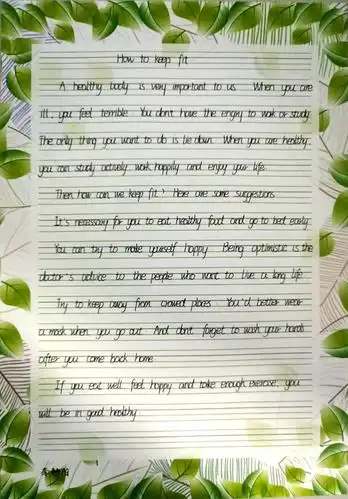 How to keep fit
A healthy body is very important to us. When you are
ill, you feel terrible. You don't have the engry to work or study.
The only thing you want to do is lie down. When you are healthy,
you can study actively work happily and enjoy your life.
Then how can we keep fit? Here are some suggestions.
It's necessary for you to eat healthy food and go to bed early.
You can try to make yourself happy. Being optimistic is the
doctor's advice to the people who want to live a long life.
Try to keep away from crowed places. You'd better wear
a mask when you go out. And don't forget to wash your hands
after you come back home.
If you eat well feel happy and take enough exercise, you
will be in good healthy